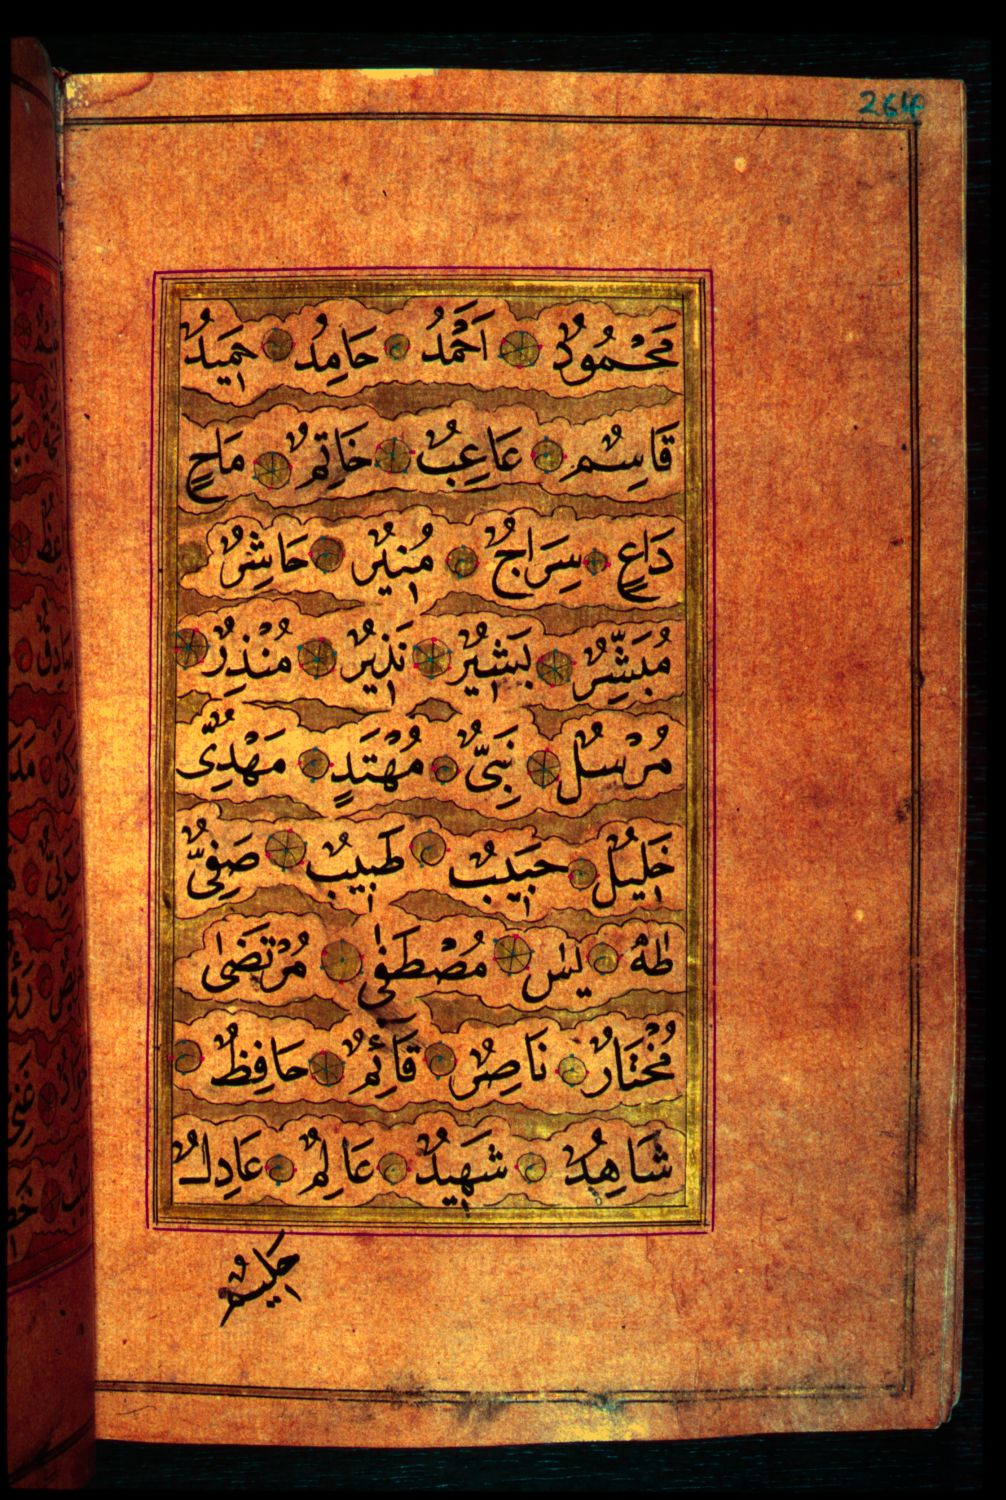 264
مَحْمُودٌ اَحْمَدُ حَامِدٌ حَمِيدٌ
قَاسِمٌ عَاعِبٌ خَاتِمٌ مَاحٍ
دَاعٍ سِرَاجٌ مُنِيرٌ حَاشِرٌ
مُبَشِّرٌ بَشِيرٌ نَذِيرٌ مُنْذِرٌ
مُرْسَلٌ نَبِيٌّ مُهْتَدٍ مَهْدِيٌّ
خَلِيلٌ حَبِيبٌ طَبِيبٌ صَفِيٌّ
طٰهٰ يٰس مُصْطَفٰى مُرْتَضٰى
مُخْتَارٌ نَاصِرٌ قَائِمٌ حَافِظٌ
شَاهِدٌ شَهِيدٌ عَالِمٌ عَادِلٌ
حَلِيمٌ